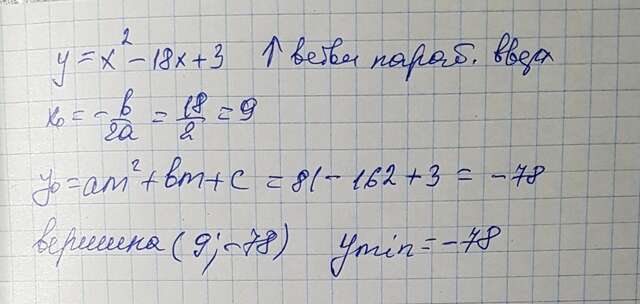 y = x² - 18x + 3 ↑ ветви параб. вверх
x₀ = -b/2a = 18/2 = 9
y₀ = am² + bm + c = 81 - 162 + 3 = -78
вершина (9; -78) ymin = -78